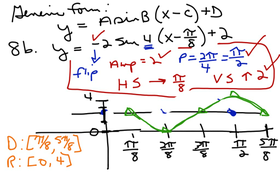 Generic form:
y = A sin B (x - C) + D
8b. y = -2 sin 4 (x - π/8) + 2
flip
Amp = 2
P = 2π/4 = π/2
HS → π/8
VS ↑ 2
4
0
π/8 2π/8 3π/8 π/2 5π/8
D: [π/8, 5π/8]
R: [0, 4]